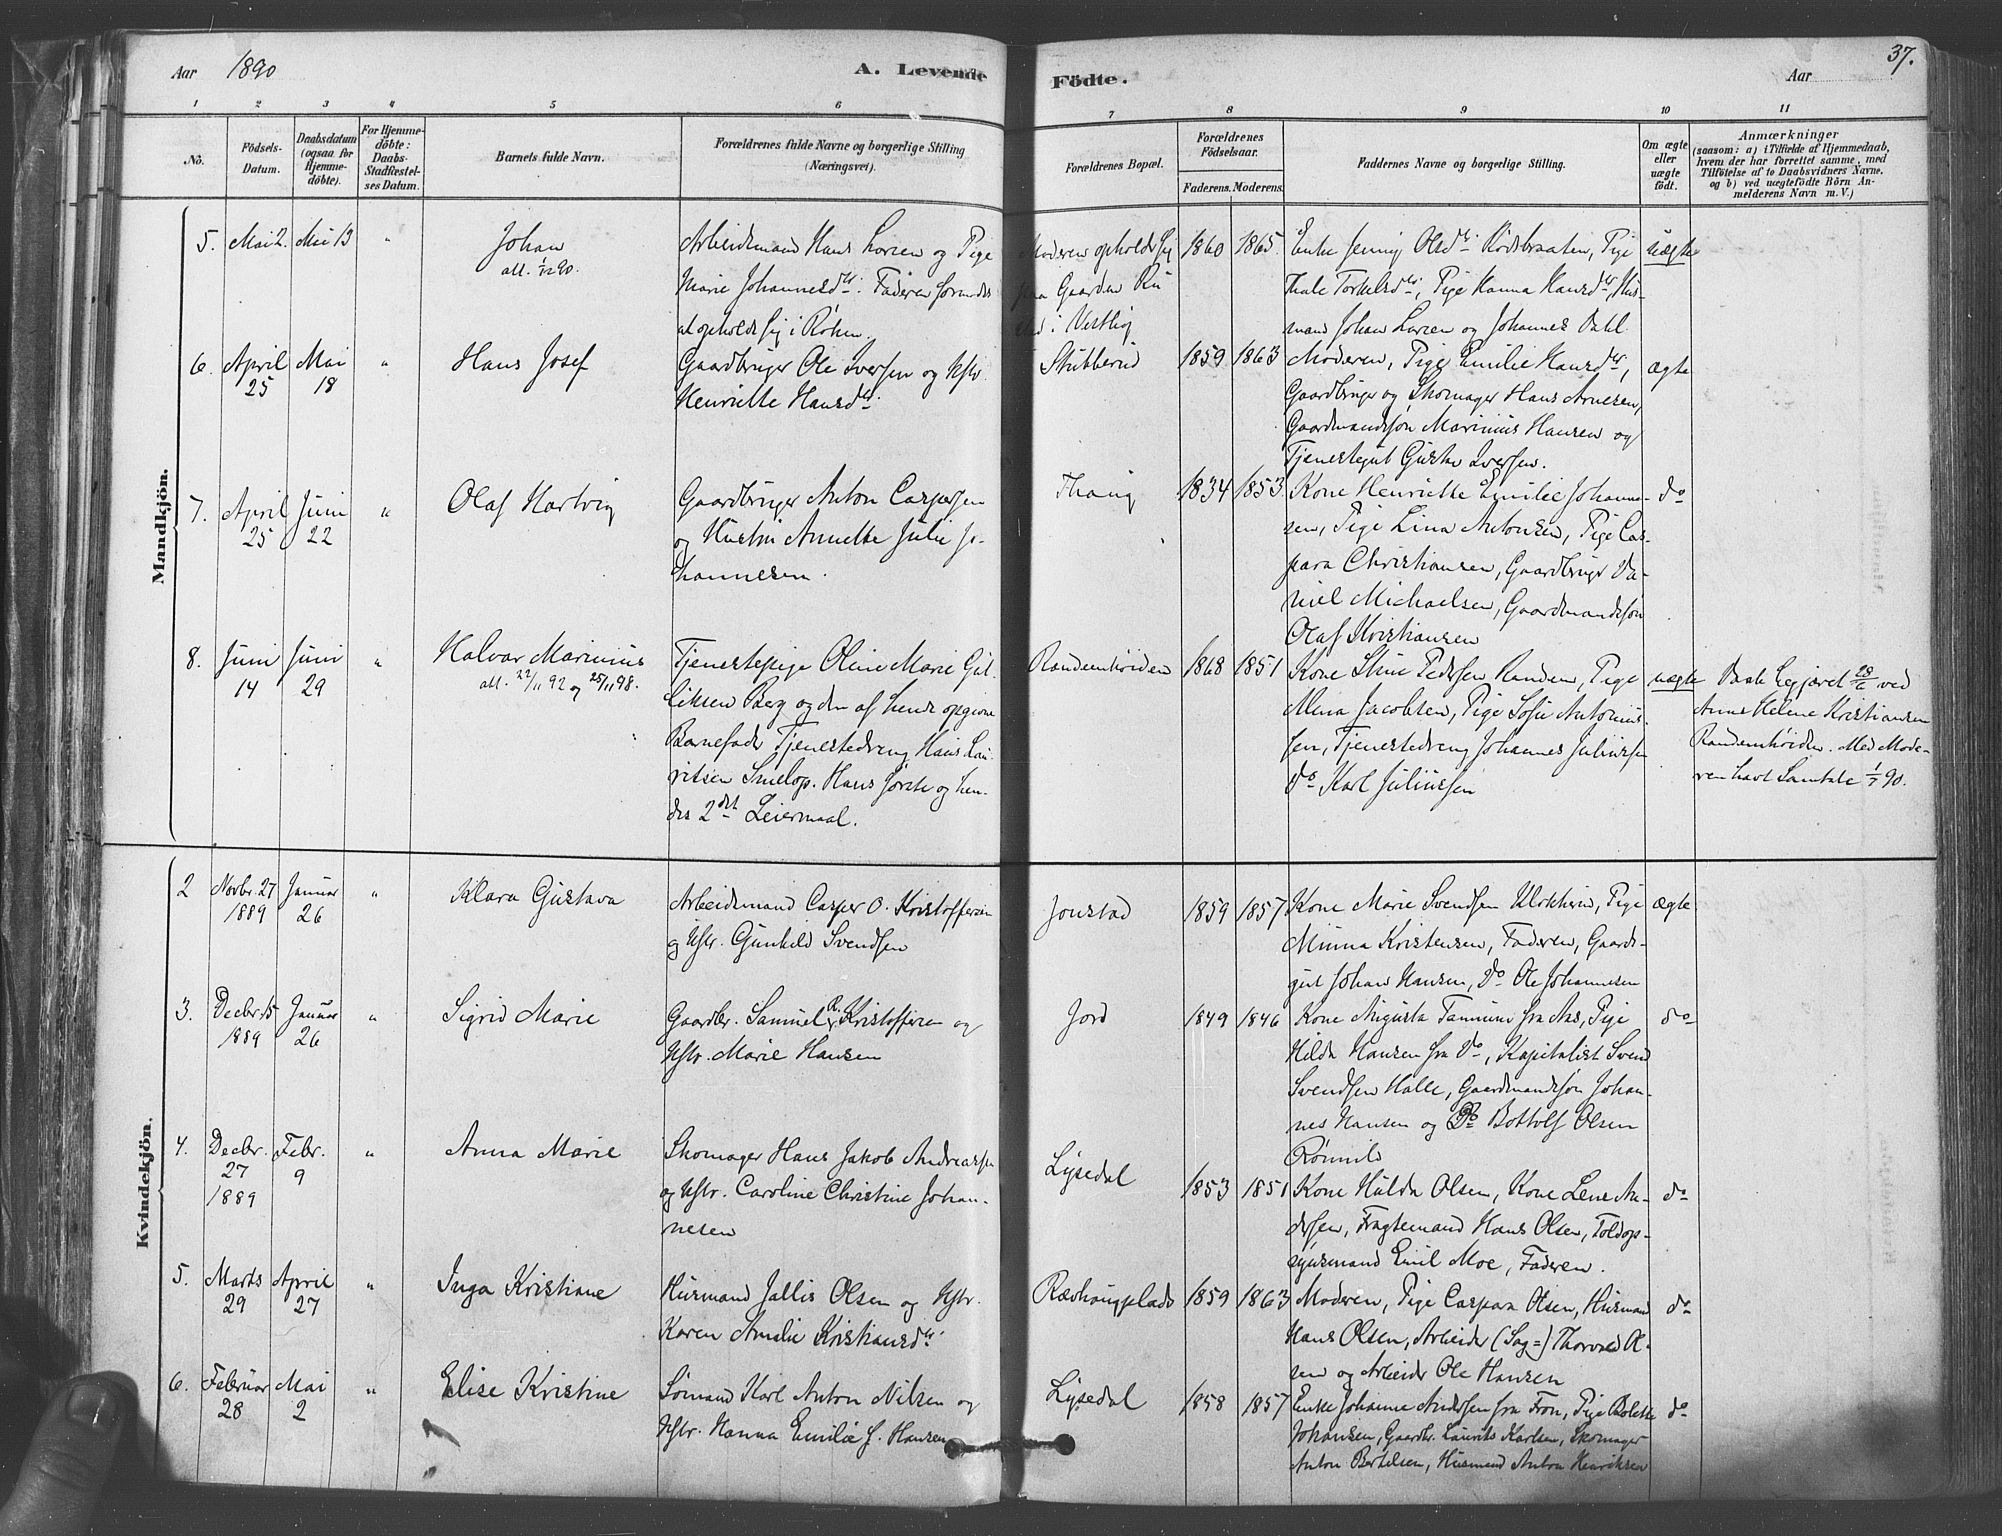 Aar 1890
A. Levende
Födte.
Aar
37.
1 2 3 4 5 6 7 8 9 10 11
No.
Födsels-
Datum.
Daabsdatum
(ogsaa for
Hjemme-
döbte).
For Hjemme-
döbte:
Daabs-
Stadfæstel-
ses Datum.
Barnets fulde Navn.
Forældrenes fulde Navne og borgerlige Stilling
(Næringsvei).
Forældrenes Bopæl.
Forældrenes
Födselsaar.
Faderens. Moderens.
Faddernes Navne og borgerlige Stilling.
Om ægte
eller
uægte
födt.
Anmærkninger
(saasom: a) i Tilfælde af Hjemmedaab,
hvem der har forrettet samme, med
Tilföielse af to Daabsvidners Navne,
og b) ved uægtefödte Börn An-
melderens Navn m. V.)
Mandkjön.
5. Mai 2. Mai 13 "
Johan
att. 1/12 90.
Arbeidsmand Hans Larsen og Pige
Marie Johannesdtr: Faderen
at opholde sig i Røken.
Moderen opholdt sig
paa Gaarden
i
1860 1865
Enke Jenny Olsdtr Rødsbraaten, Pige
Thale Torkelsdtr, Pige Hanna Hansdtr, Hus-
mand Johan Larsen og Johannes Dahl.
uægte
6. April
25
Mai
18
"
Hans Josef
Gaardbruger Ole Iversen og Hstr.
Henriette Hansdtr.
Stubberud
1859 1863
Moderen, Pige Emilie Hansdtr,
Gaardbruger og Skomager Hans Arnesen,
Gaardmandssøn Marinius Hansen og
Tjenestegut Gustav Iversen.
ægte
7. April
25
Juni
22
"
Olaf Hartvig
Gaardbruger Anton Caspersen
og Hustru Annette Julie Jo-
hannesen.
1834 1853
Kone Henriette Emilie Johanne-
sen, Pige Lina Antonsen, Pige Cas-
para Christiansen, Gaardbruger Da-
niel Michaelsen, Gaardmandssøn
Olaf Kristiansen
do
8. Juni
14
Juni
29
"
Halvor Marinius
att. 22/11 92 og 25/11 98.
Tjenestepige Oline Marie Gul-
liksen Berg og den af hende opgivne
Barnefader Tjenestedreng Hans Lau-
ritsen Smelop. Hans første og hen-
des 2det Leiermaal.
Randemhøiden
1868 1851
Kone Stine Pedersen Randem, Pige
Mina Jacobsen, Pige Sofie Antonius-
sen, Tjenestedreng Johannes Juliussen
do, Karl Juliussen
uægte
Daab begjæret 28/6 ved
Anne Helene Kristiansen
Randemhøiden. Med Mode-
ren havt Samtale 1/7 90.
Kvindekjön.
2 Novbr. 27
1889
Januar
26
"
Klara Gustava
Arbeidsmand Casper O. Kristoffersen
og Hstr. Gunhild Svendsen
Jonstad
1859 1857
Kone Marie Svendsen Klokkerud, Pige
Minna Kristensen, Faderen, Gaards-
gut Johan Hansen, do Ole Johannesen
ægte
3. Decbr. 15
1889
Januar
26
"
Sigrid Marie
Gaardbr. Samuel R. Kristoffersen og
Hstr. Marie Hansen
Jord
1849 1846
Kone Augusta Tannum fra Aas, Pige
Hilda Hansen fra do, Kapitalist Svend
Svendsen Halle, Gaardmandssøn Johan-
nes Hansen og Do Bottolf Olsen
Rømnild
do
4. Decbr.
27
1889
Febr.
9
"
Anna Marie
Skomager Hans Jakob Andreassen
og Hstr. Caroline Christine Johan-
nesen
Lysedal
1853 1851
Kone Hulda Olsen, Kone Lene An-
dersen, Fragtemand Hans Olsen, Toldop-
synsmand Emil Moe, Faderen.
do
5. Marts
29
April
27
"
Inga Kristiane
Husmand Jallis Olsen og Hstr.
Karen Amalie Kristiansdtr.
Ravhougplads
1859 1863
Moderen, Pige Caspara Olsen, Husmand
Hans Olsen, Arbeider (Sag=) Thorvald Ol-
sen og Arbeider Ole Hansen
do
6. Februar
28
Mai
2
"
Elise Kristine
Sømand Karl Anton Nilsen og
Hstr. Hanna Emilie J. Hansen
Lysedal
1858 1857
Enke Johanne Andersen fra Fron, Pige Bolette
Johansen, Gaardbr. Laurits Karlsen, Skomager
Anton Bertelsen, Husmand Anton Henriksen
do